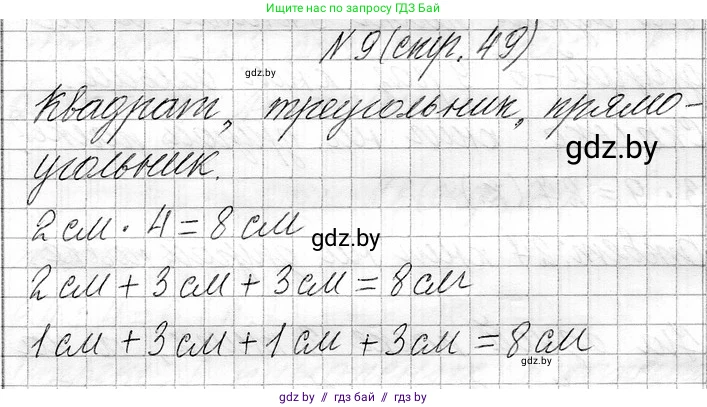 Ищите нас по запросу ГДЗ Бай
N 9 (стр. 49)
gdz.by
Квадрат, треугольник, прямо-
gdz.by
угольник.
2 см · 4 = 8 см
gdz.by
2 см + 3 см + 3 см = 8 см
1 см + 3 см + 1 см + 3 см = 8 см
gdz.by
gdz.by // гдз бай // гдз.бу